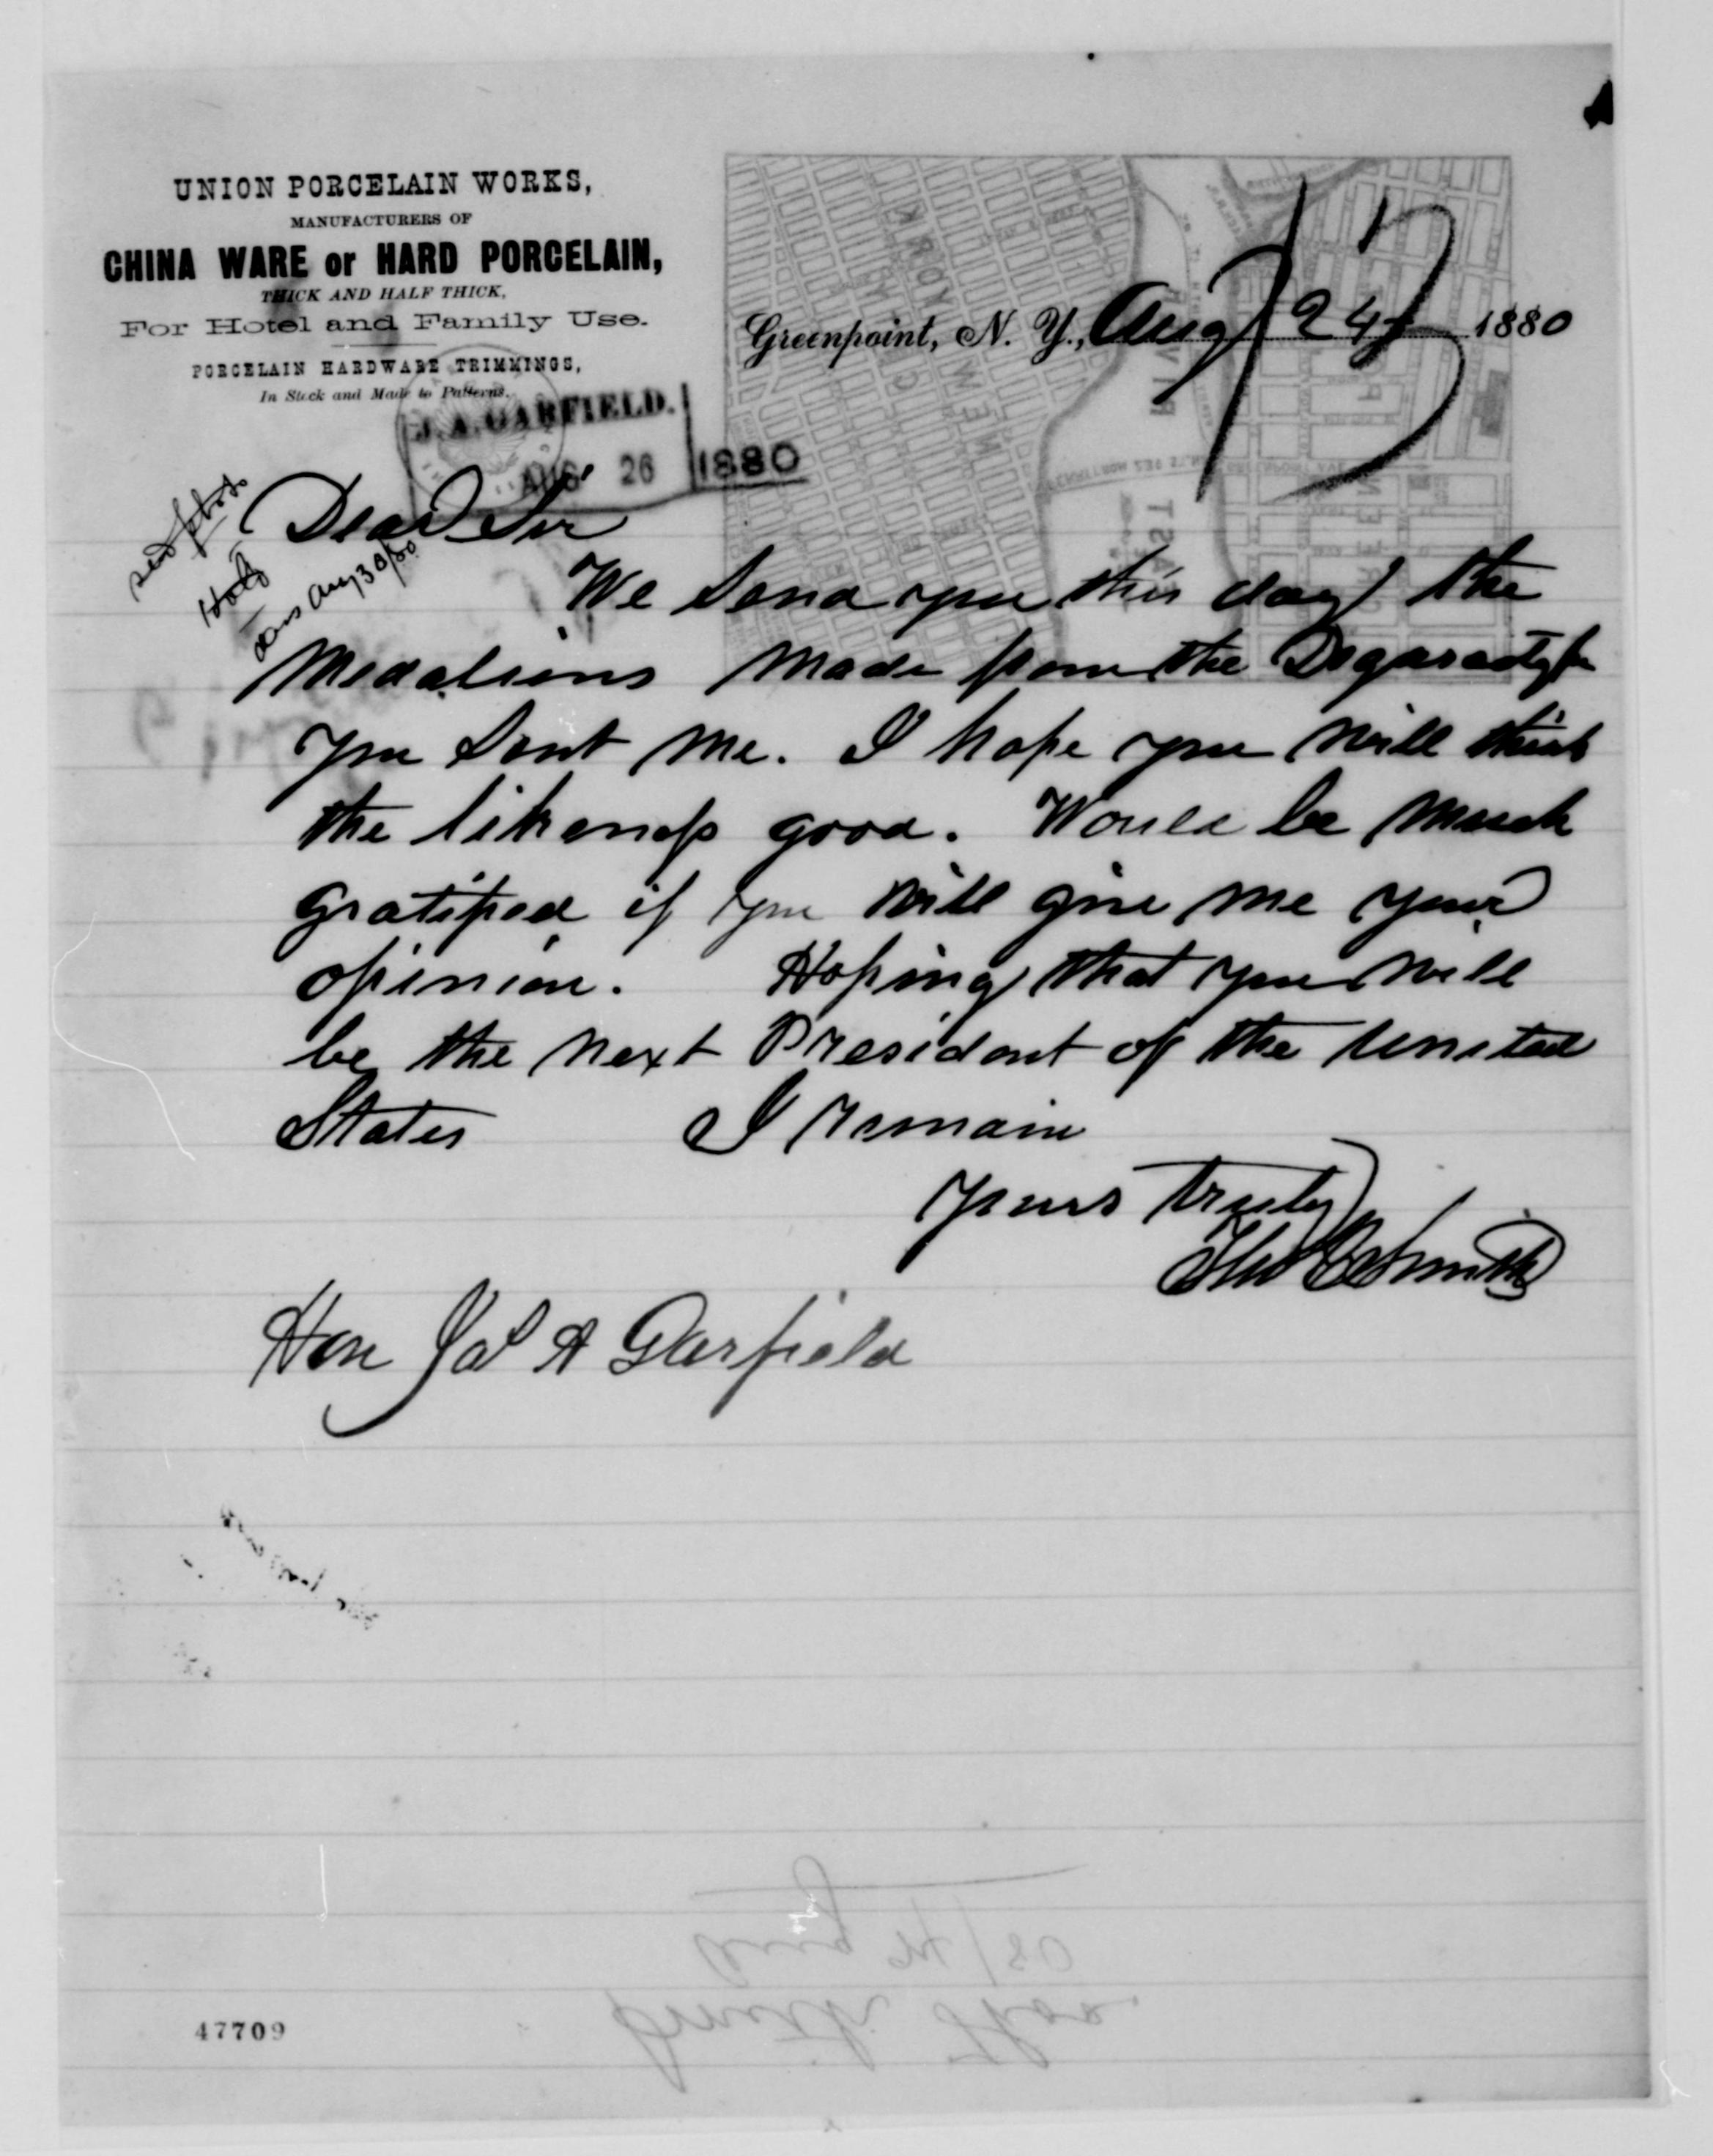 UNION PORCELAIN WORKS,
MANUFACTURERS OF
CHINA WARE or HARD PORCELAIN,
THICK AND HALF THICK,
For Hotel and Family Use.
PORCELAIN HARDWARE TRIMMINGS,
In Stock and Made to Patterns.
Greenpoint, N. Y., Aug 24 1880
J. A. GARFIELD.
AUG 26 1880
Aug 30/80
Dear Sir
We send you this day the
Medalions made from the
you sent me. I hope you will think
the likeness good. Would be much
gratified if you will give me your
opinion. Hoping that you will
be the next President of the United
States I remain
Yours truly
Thos C Smith
Hon Jas A Garfield
Aug 24/80
Smith Thos.
47709